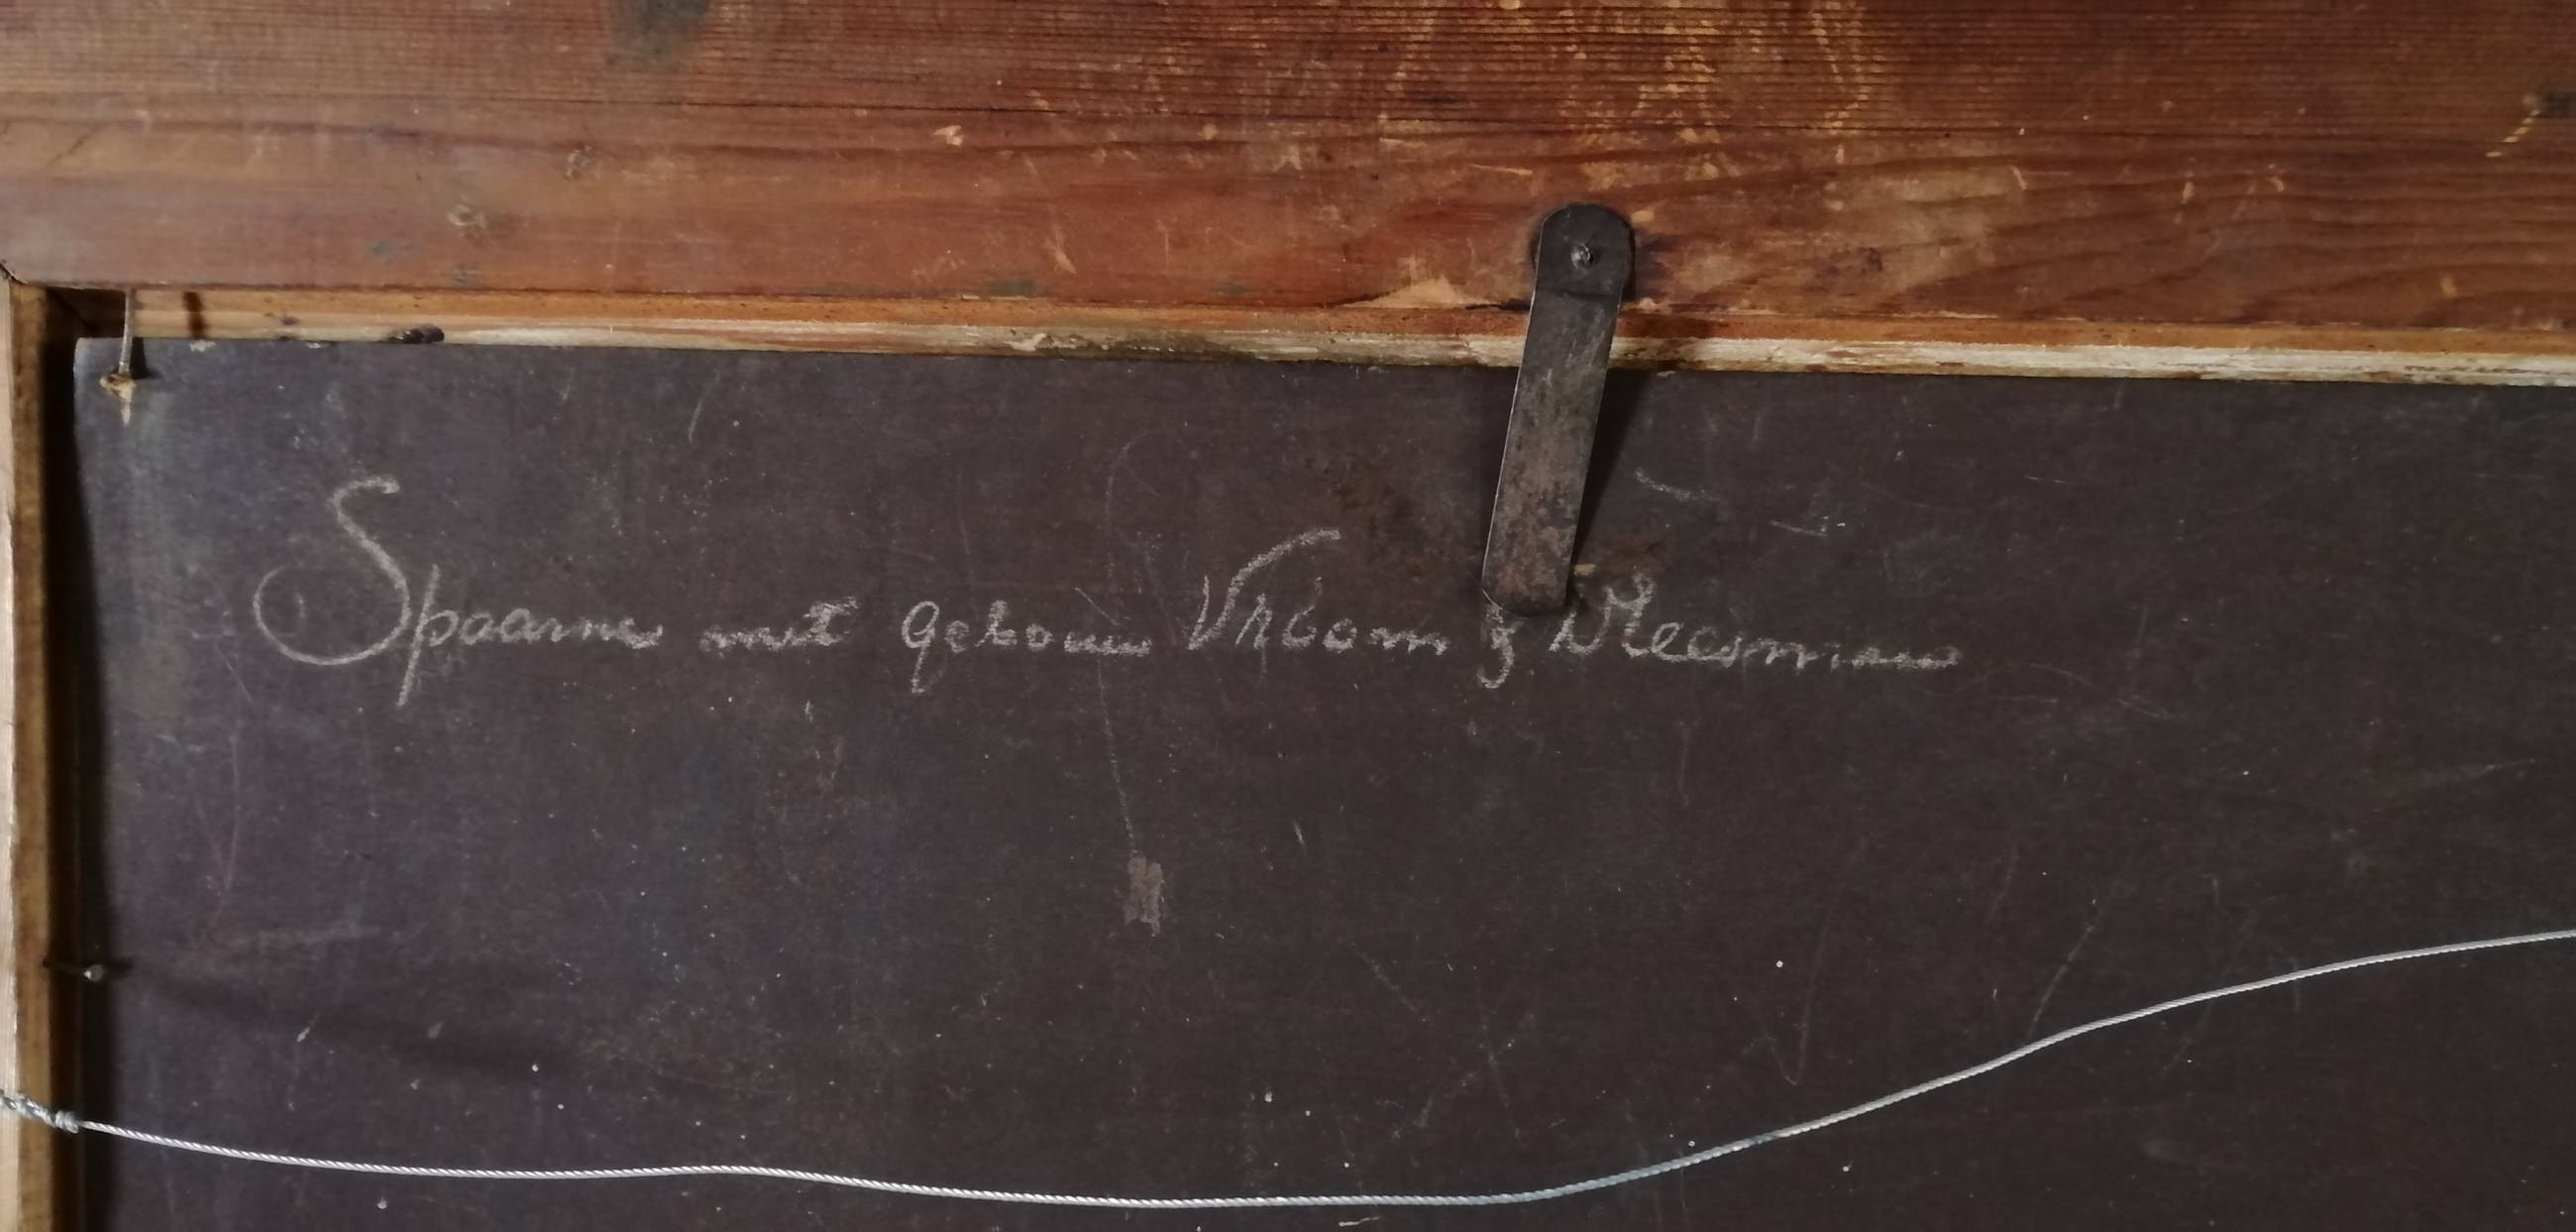 Spaarne met gebouw Vroom & Dreesman